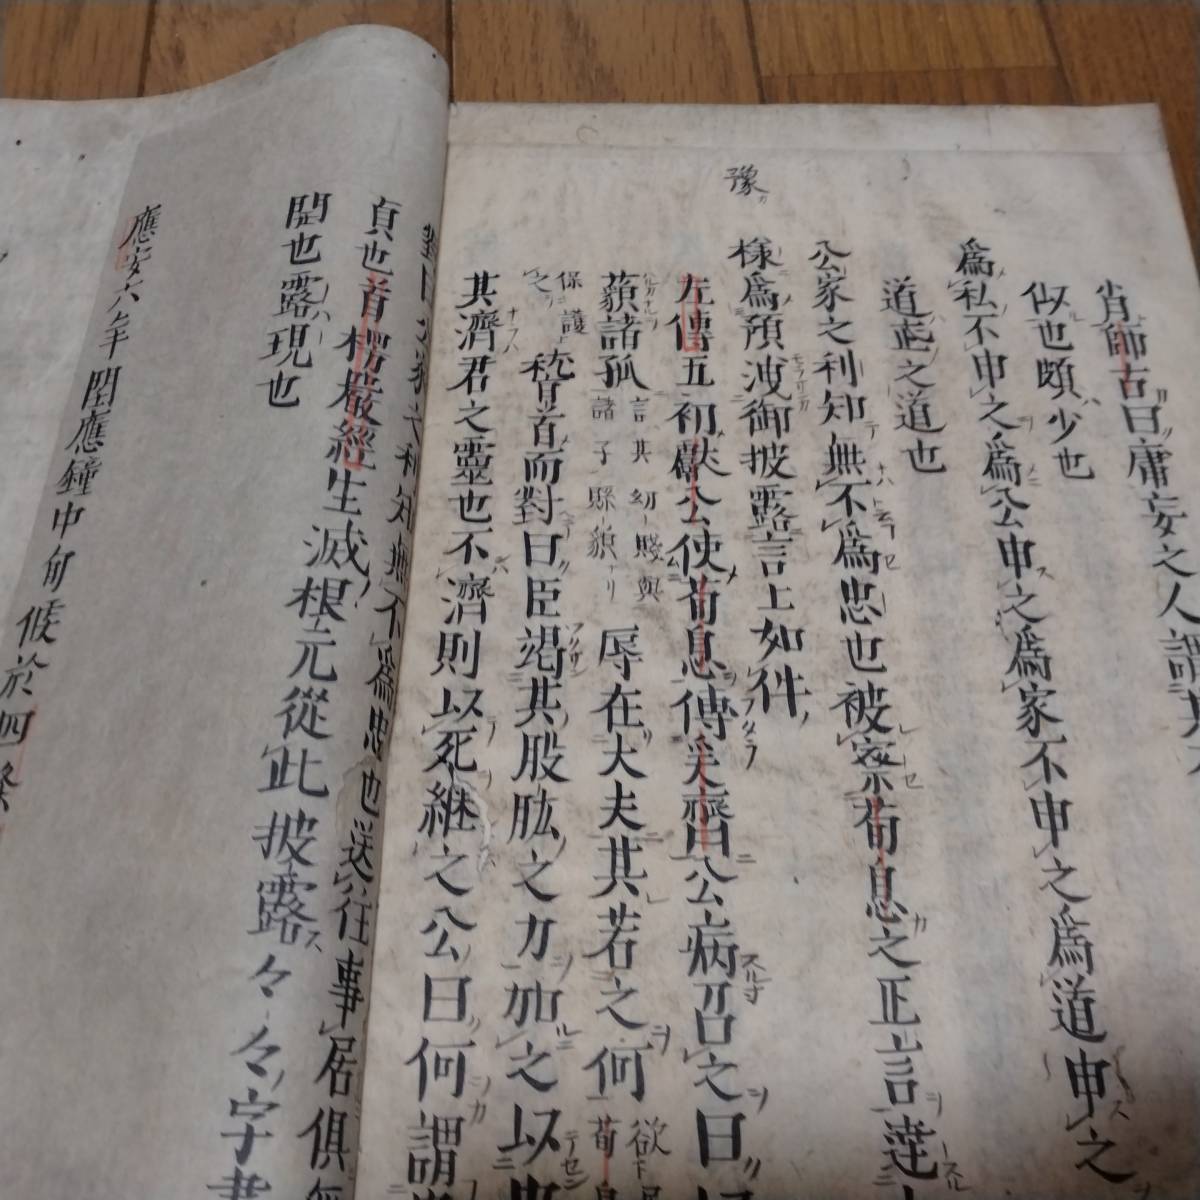 肖師古曰庸妄之人謂其不
似也頗少也
爲私不申之爲公申之爲家不申之爲道申之
道正之道也
公家之利知無不爲忠也被察荀息之正言達
豫
様爲預洩御披露言上如件
左傳五初獻公使荀息傅奚齊公病召之曰
藐諸孤言其幼賤與諸子縣藐辱在大夫其若之何
保護稽首而對曰臣竭其股肱之力加之以
其濟君之靈也不濟則以死継之公曰何謂
對曰公家之利知無不爲忠也送往事居俱
貞也首楞嚴經生滅根元從此披露々々字
聞也露現也
應安六年閏應鐘中旬候於四